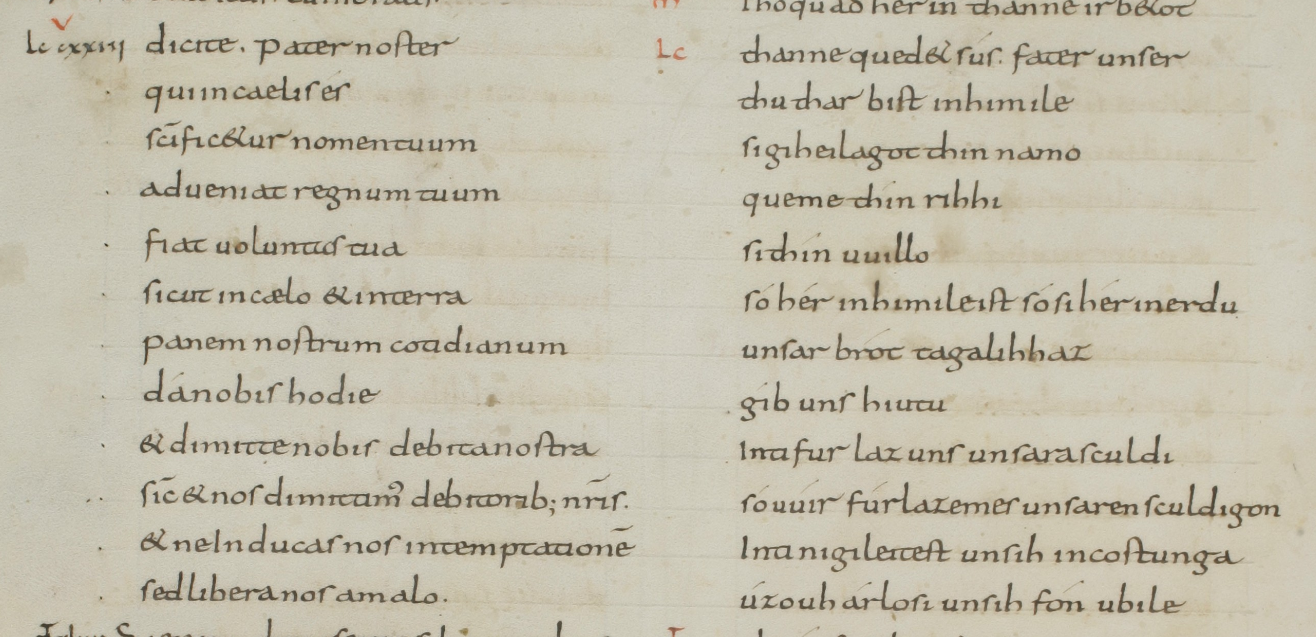 dicite. pater noster
qui in caelis és
sc̄ificetur nomen tuum
adueniat regnum tuum
fiat uoluntas tua
sicut in cælo & in terra
panem nostrum cotidianum
dá nobis hodie
& dimitte nobis debita nostra
sic̄ & nos dimittam̉ debitorib; nr̄is.
& ne Inducas nos in temptationē
sed libera nos a malo.
Lc
thanne qued& sús. fater unser
thu thar bist in himile
si giheilagot thin namo
queme thin rihhi
si thin uuillo
só hér in himile ist só si hér in erdu
unsar brót tagalihhaz
gib uns hiutu
Inti furlaz uns unsara sculdi
só uuír furlazemes unsaren sculdigon
Inti ni gileitest unsih in costunga
úzouh árlosi unsih fón ubile